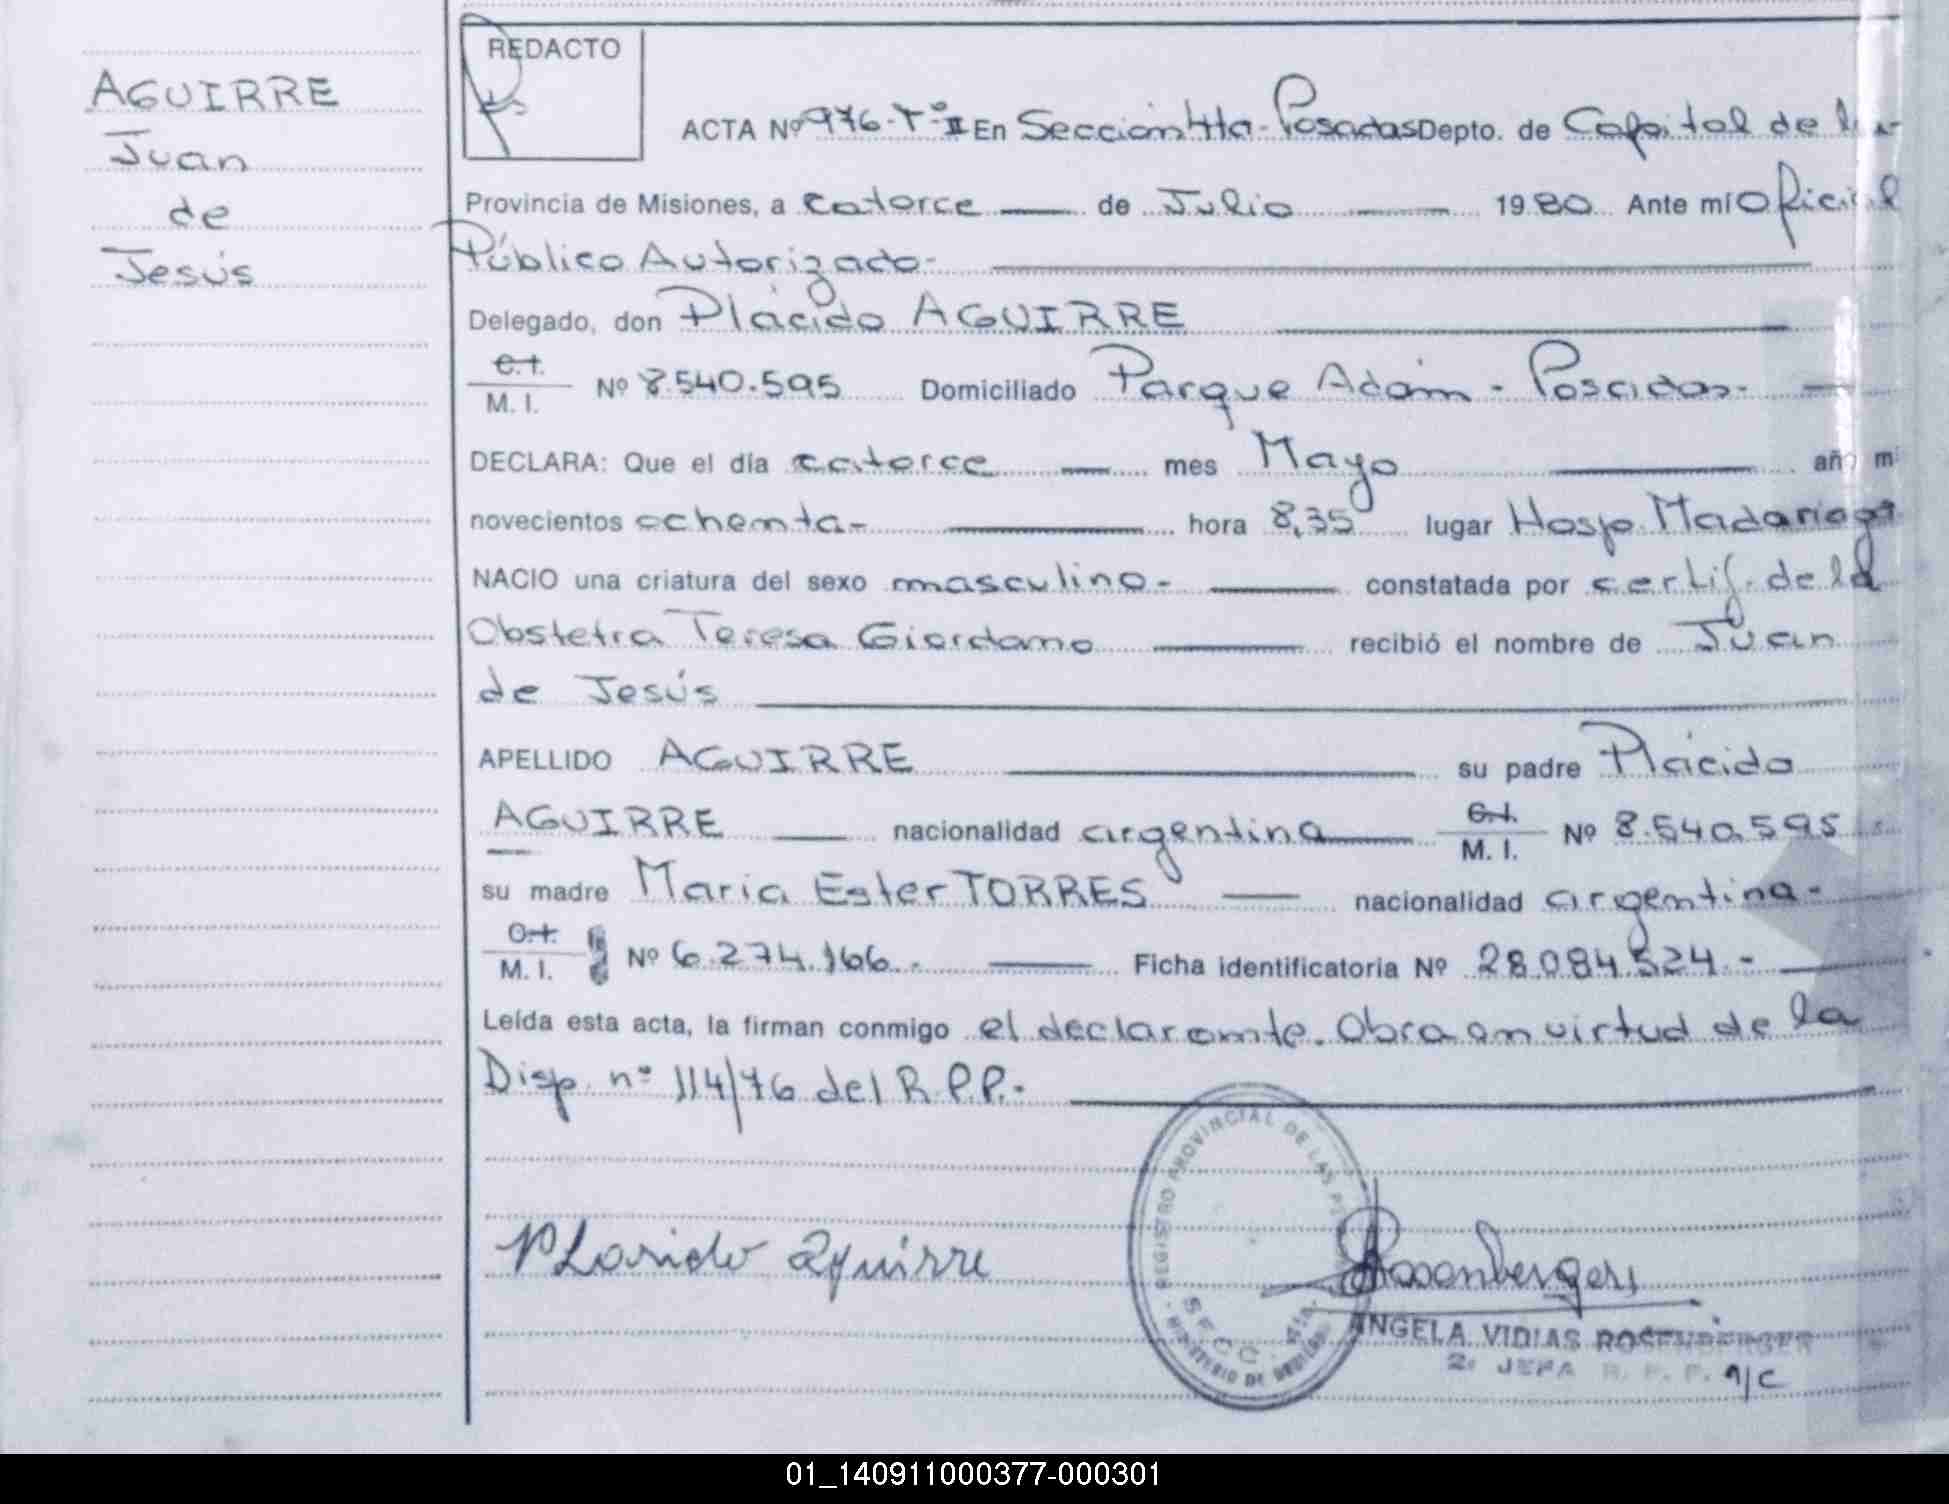 AGUIRRE
Juan
de
Jesús
REDACTO
ACTA Nº 976-Tº II En Sección 4ta - Posadas Depto. de Capital de la
Provincia de Misiones, a catorce de Julio 1980 Ante mí Oficial
Público Autorizado-
Delegado, don Plácido AGUIRRE
C.I.
M. I. Nº 8.540.595 Domiciliado Parque Adam - Posadas-
DECLARA: Que el día catorce mes Mayo año mi
novecientos ochenta- hora 8,35 lugar Hosp. Madariaga
NACIO una criatura del sexo masculino- constatada por certif. de la
Obstetra Teresa Giordano recibió el nombre de Juan
de Jesús
APELLIDO AGUIRRE su padre Plácido
AGUIRRE nacionalidad argentina C.I.
M. I. Nº 8.540.595
su madre Maria Ester TORRES nacionalidad argentina-
C.I.
M. I. Nº 6.274.166.- Ficha identificatoria Nº 28.084.524.-
Leída esta acta, la firman conmigo el declarante. Obra en virtud de la
Disp. nº 114/76 del R.P.P.-
REGISTRO PROVINCIAL DE LAS
SECC. 4ta.
MINISTERIO DE
PLasido Aguirre
Rosenberger
ANGELA VIDIAS ROSENBERGER
2º JEFA R. P. P. a/c
01_140911000377-000301